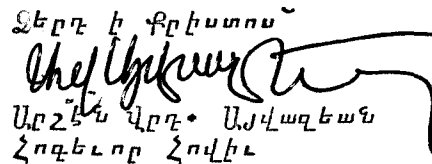 Ձերդ ի Քրիստոս՝
Արշէն Վրդ. Այվազեան
Հոգեւոր Հովիւ